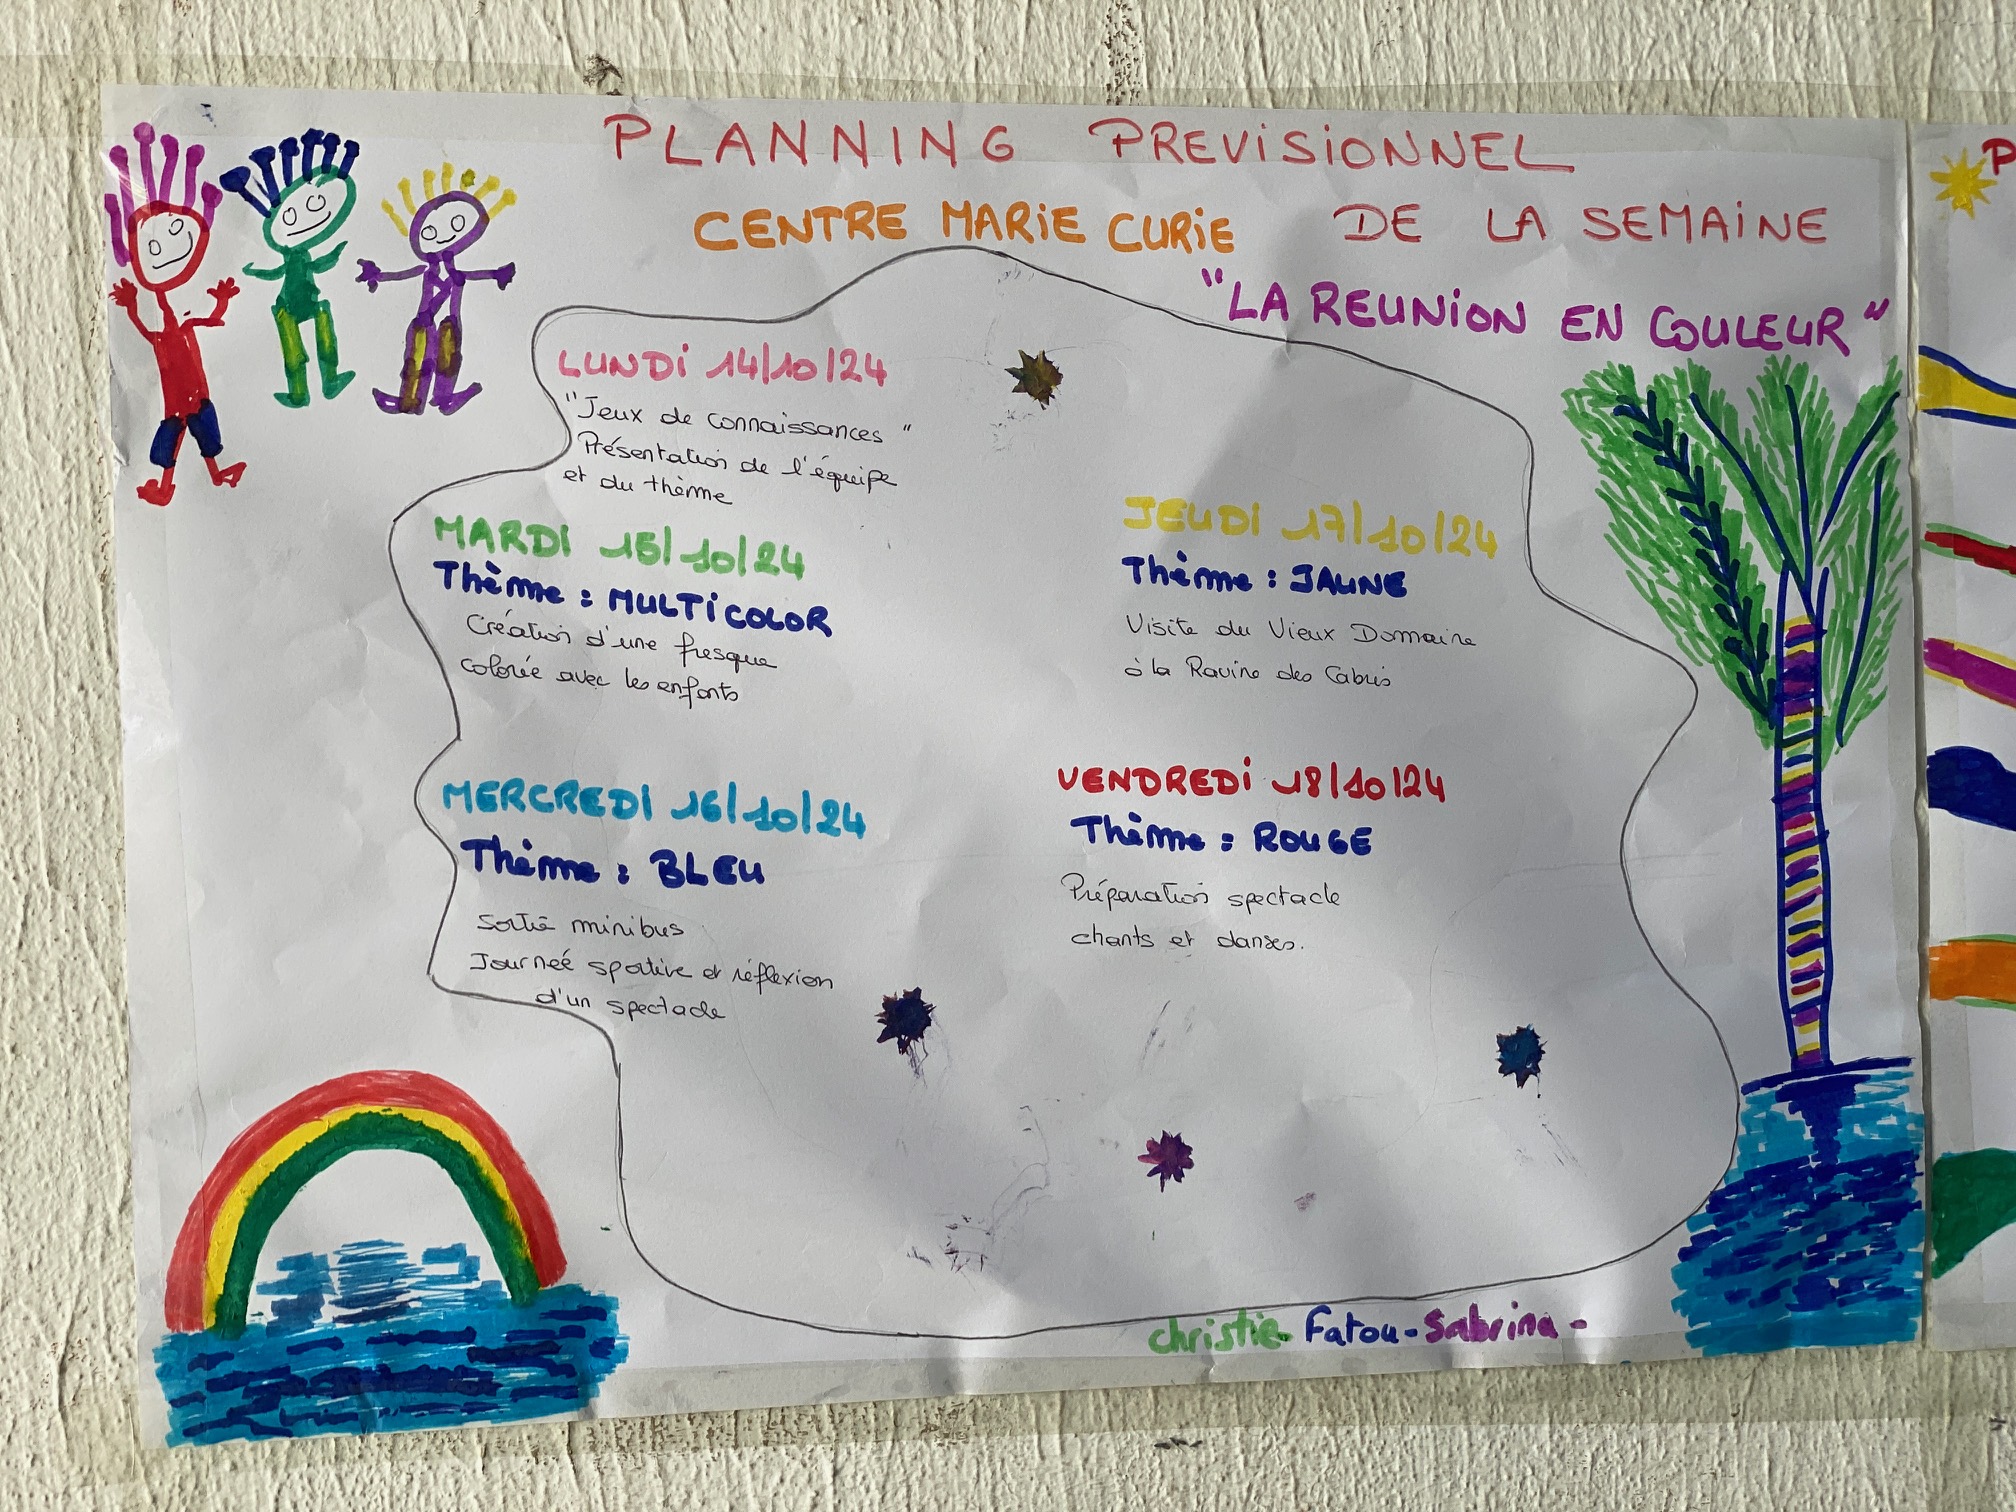 PLANNING PREVISIONNEL
CENTRE MARIE CURIE DE LA SEMAINE
"LA REUNION EN COULEUR"
LUNDI 14/10/24
"Jeux de connaissances"
Présentation de l'équipe
et du thème
MARDI 15/10/24
Thème : MULTICOLOR
Création d'une fresque
colorée avec les enfants
MERCREDI 16/10/24
Thème : BLEU
Sortie minibus
Journeé sportive et réflexion
d'un spectacle
JEUDI 17/10/24
Thème : JAUNE
Visite du Vieux Domaine
à la Ravine des Cabris
VENDREDI 18/10/24
Thème : ROUGE
Préparation spectacle
chants et danses.
christie - Fatou - Sabrina -
P